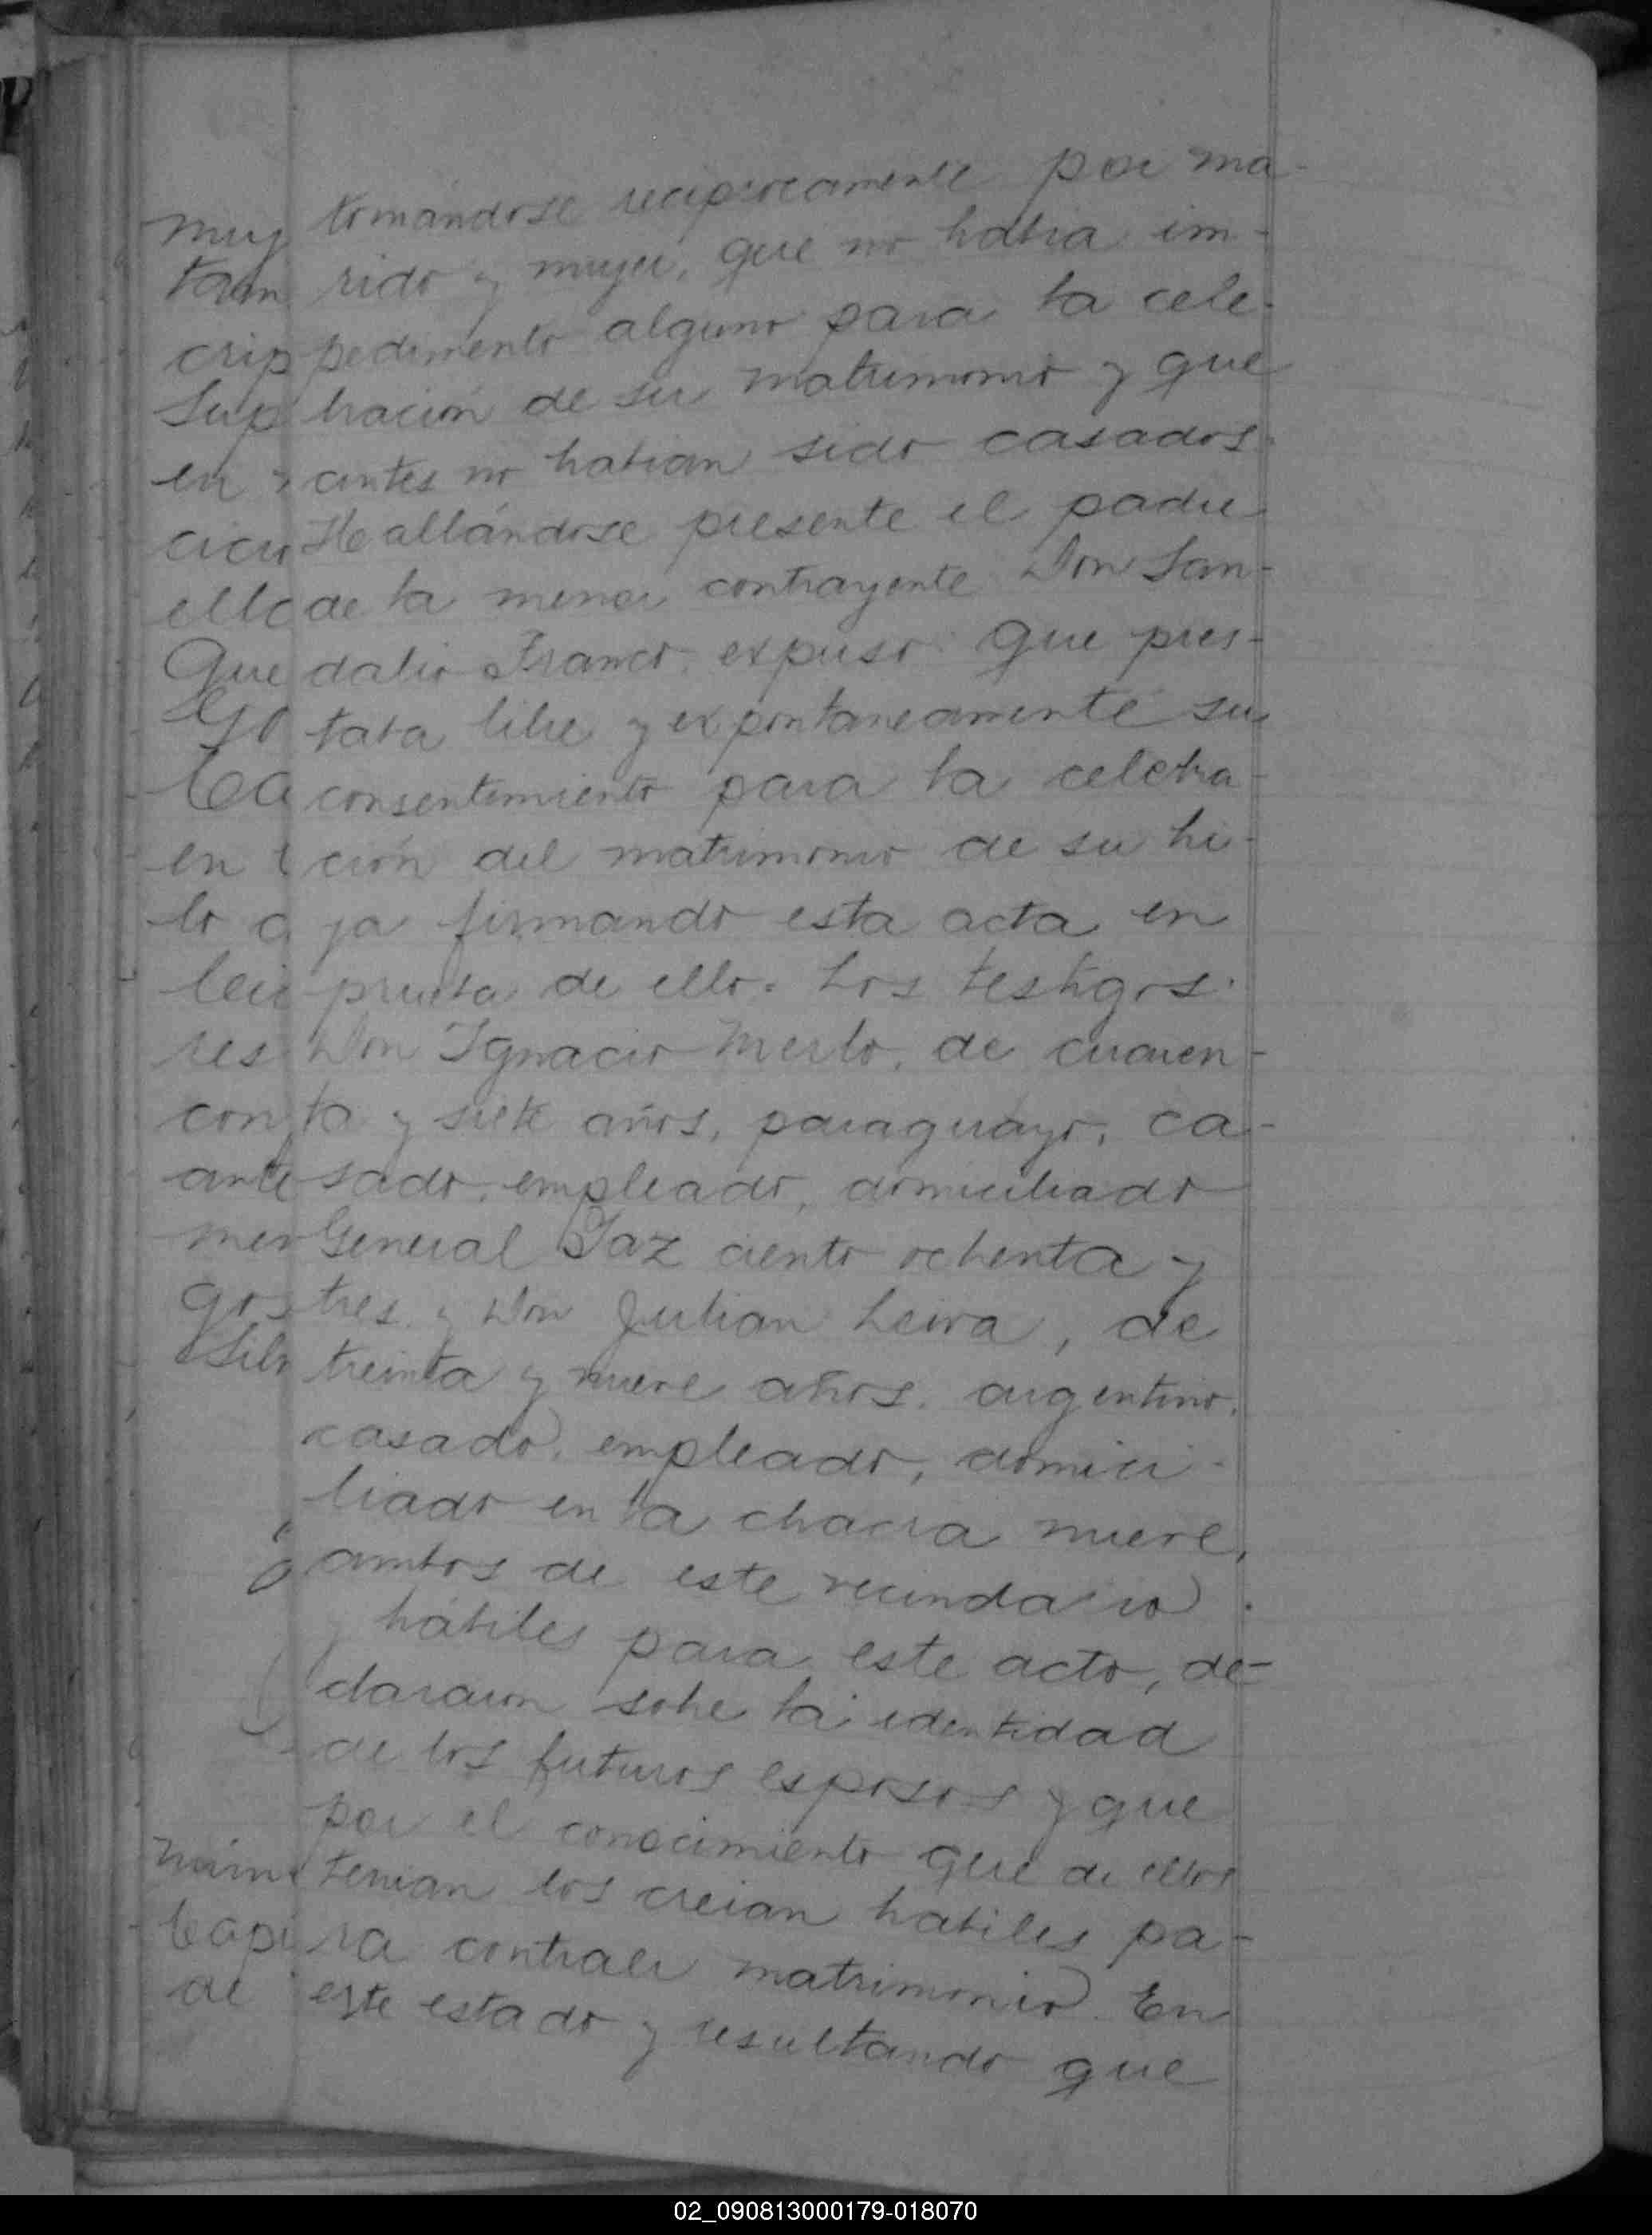 tomándose reciprocamente por ma-
rido y mujer, que no habia im-
pedimento alguno para la cele-
bración de su matrimonio y que
antes no habian sido casados.
Heallándose presente el padre
de la menor contrayente Don San-
dalio Franco, expuso: Que pres-
taba libre y expontaneamente su
consentimiento para la celebra-
ción del matrimonio de su hi-
ja firmando esta acta en
prueba de ello. Los testigos:
Don Ignacio Merlo, de cuaren-
ta y siete años, paraguayo, ca-
sado, empleado, domiciliado
General Paz ciento ochenta y
tres y Don Julian Leiva, de
treinta y nueve años, argentino,
casado, empleado, domici-
liado en la chacra nueve,
ambos de este vecindario
y hábiles para este acto, de-
clararon sobre la identidad
de los futuros esposos y que
por el conocimiento que de ellos
tenian los creian habiles pa-
ra contraer matrimonio. En
este estado y resultando que
muy
tam
crip
Sup
en
ello
Que
en
lo
res
con
ante
men
gos
Capi
de
02_090813000179-018070